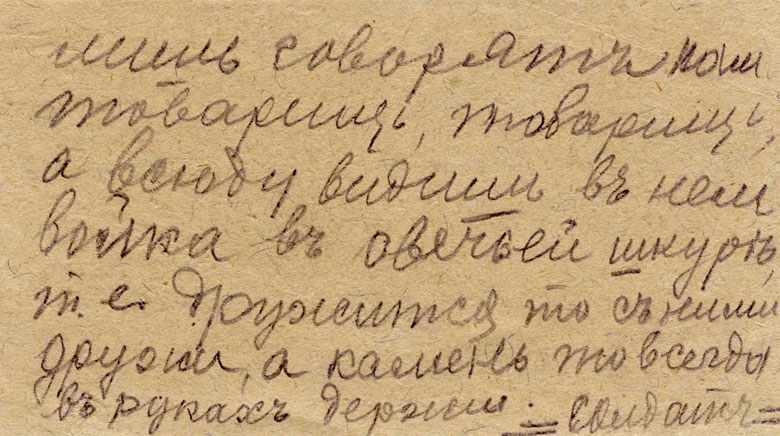 лишь говорятъ нам
товарищъ, товарищъ,
а всюду видишь въ нем
волка въ овечьей шкурѣ,
т.е. дружится то съ ними
дружи, а камень то всегда
въ рукахъ держи. = солдатъ =